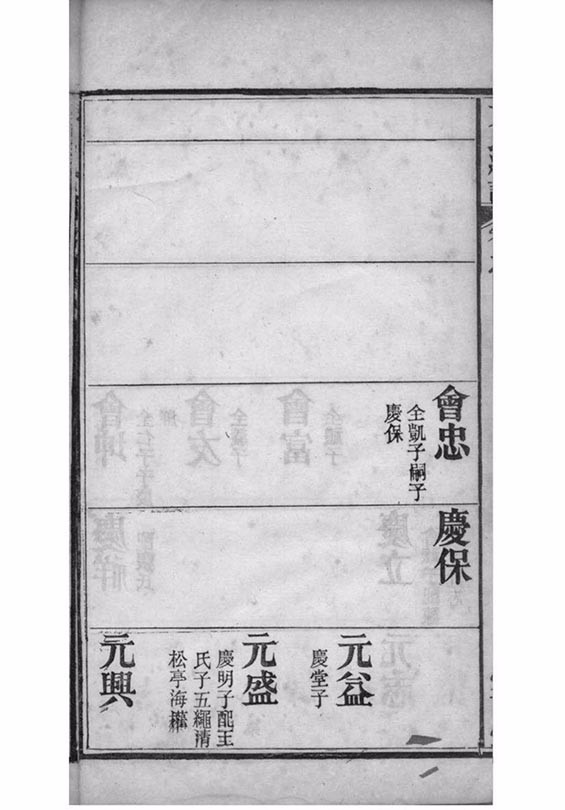 會忠
全凱子嗣子
慶保
慶保
元益
慶堂子
元盛
慶明子配王
氏子五繩清
松亭海
元興